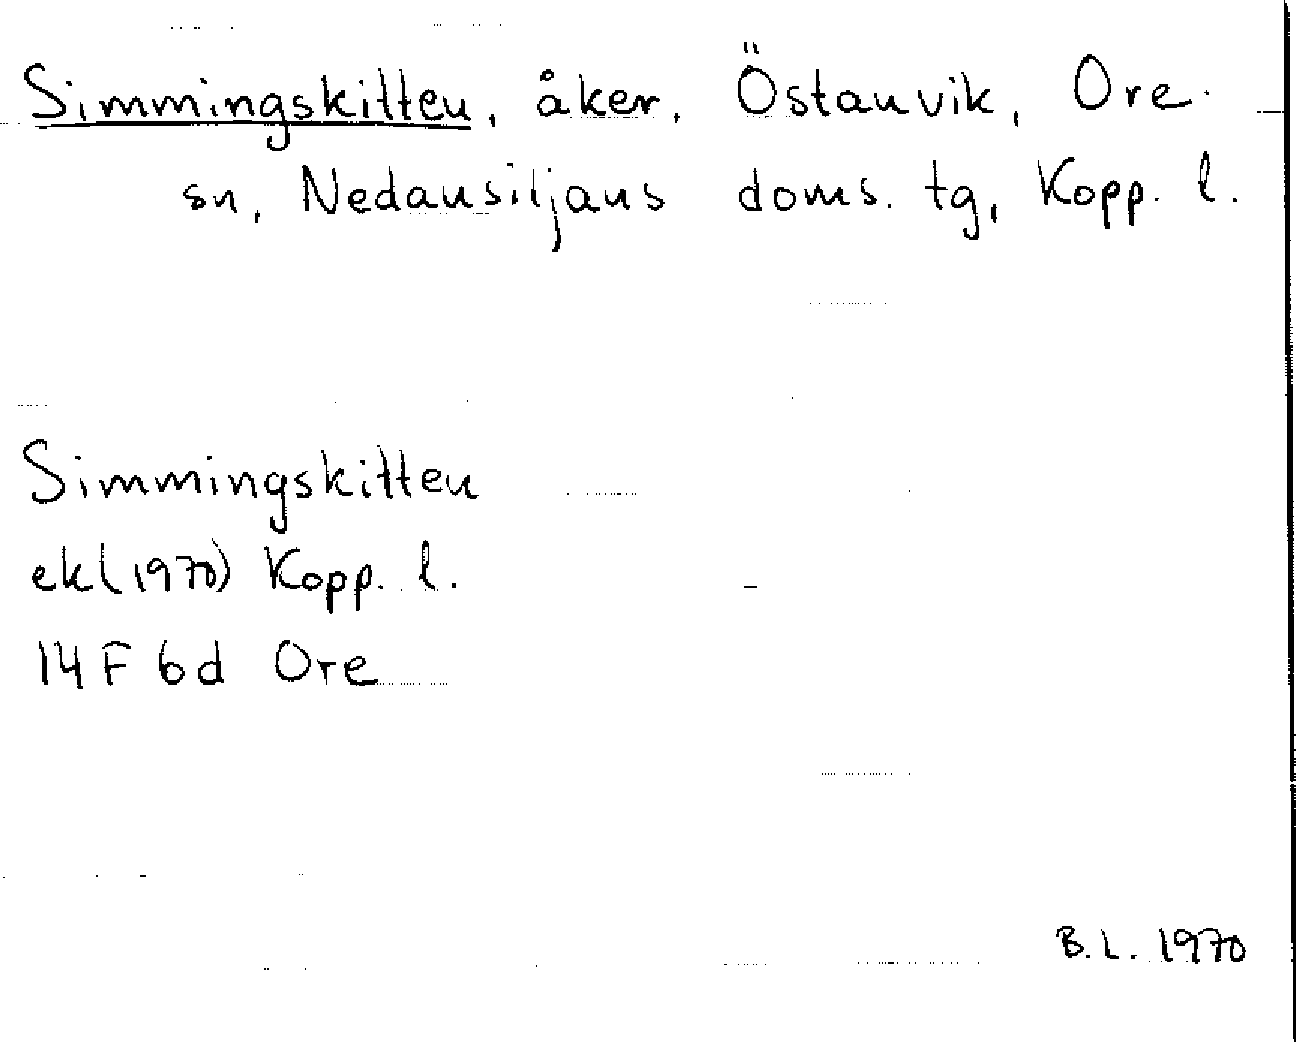 Simmingskitten, åker, Östanvik, Ore
sn, Nedansiljans doms. tg, Kopp. l.
Simmingskitten
ekl (1970) Kopp. l.
14 F 6d Ore
B. L. 1970